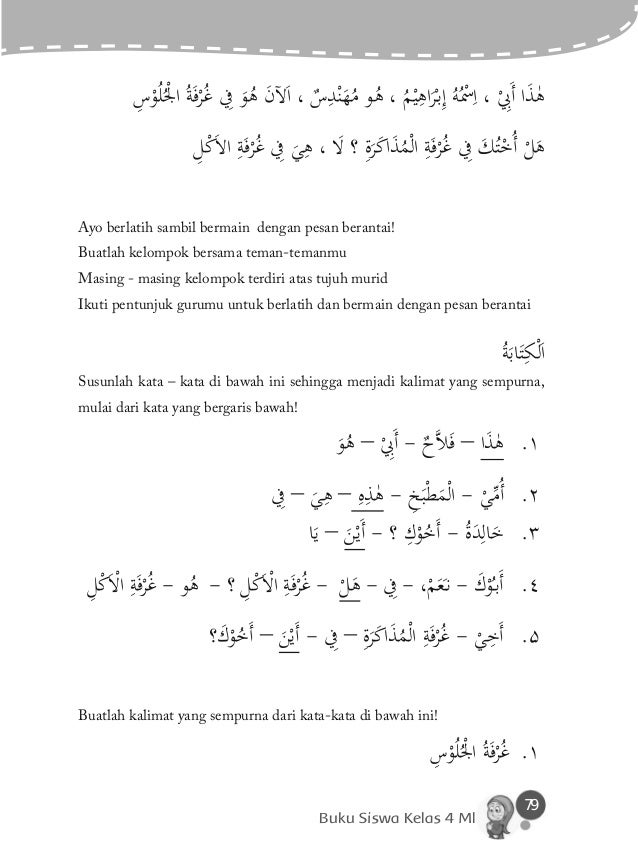 هٰذَا أَبِيْ ، اِسْمُهُ إِبْرَاهِيْمُ ، هُو مُهَنْدِسٌ ، اَلآنَ هُوَ فِي غُرْفَةُ الْجُلُوْسِ
هَلْ أُخْتُكَ فِي غُرْفَةِ الْمُذَاكَرَةِ ؟ لَا ، هِيَ فِي غُرْفَةِ الاَكْلِ
Ayo berlatih sambil bermain dengan pesan berantai!
Buatlah kelompok bersama teman-temanmu
Masing - masing kelompok terdiri atas tujuh murid
Ikuti pentunjuk gurumu untuk berlatih dan bermain dengan pesan berantai
اَلْكِتَابَةُ
Susunlah kata – kata di bawah ini sehingga menjadi kalimat yang sempurna,
mulai dari kata yang bergaris bawah!
١. هٰذَا – فَلاَّحٌ – أَبِيْ – هُوَ
٢. أُمِّيْ – الْمَطْبَخِ – هٰذِهِ – هِيَ – فِي
٣. خَالِدَةُ – أَخُوْكِ ؟ – أَيْنَ – يَا
٤. أَبُوْكَ – نَعَمْ، – فِي – هَلْ – غُرْفَةِ الْأَكْلِ ؟ – هُو – غُرْفَةِ الْأَكْلِ
٥. أَخِيْ – غُرْفَةِ الْمُذَاكَرَةِ – فِي – أَيْنَ – أَخُوْكَ؟
Buatlah kalimat yang sempurna dari kata-kata di bawah ini!
١. غُرْفَةُ الْجُلُوْسِ
Buku Siswa Kelas 4 MI
79